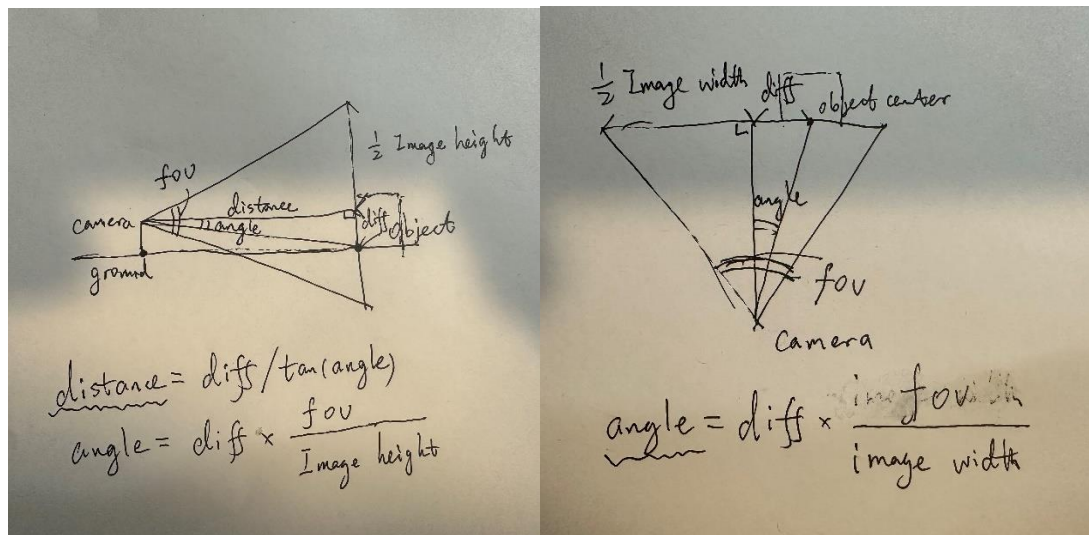 ½ Image height
fov
camera
distance
angle
diff
object
ground
distance = diff/tan(angle)
angle = diff × fov / Image height
½ Image width
diff
object center
angle
fov
camera
angle = diff × fov / image width